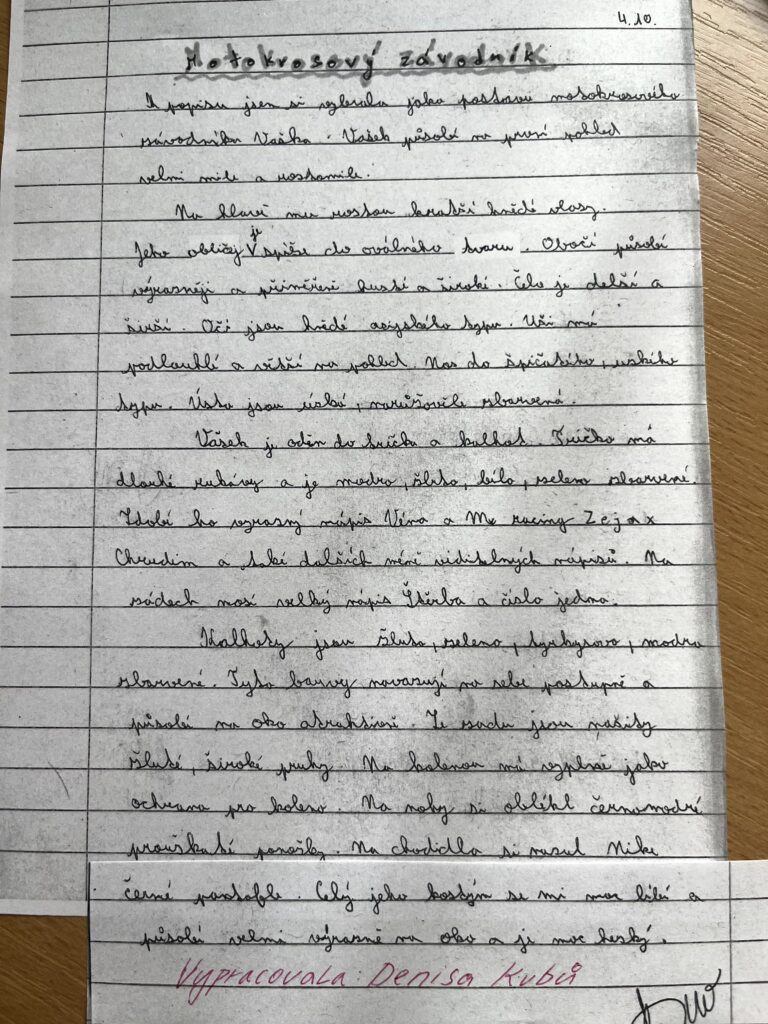 4.10.
Motokrosový závodník
K popisu jsem si vybrala jako postavu motokrosového
závodníka Vaška. Vašek působí na první pohled
velmi mile a roztomile.
Na hlavě mu rostou kratší hnědé vlasy.
Jeho obličej je spíše do oválného tvaru. Obočí působí
výrazněji a přiměřeně husté a široké. Čelo je delší a
širší. Oči jsou hnědé asijského typu. Uši má
podlouhlé a větší na pohled. Nos do špičatého, úzkého
typu. Ústa jsou úzká, narůžověle zbarvená.
Vašek je oděn do trička a kalhot. Tričko má
dlouhé rukávy a je modro, žluto, bílo, zeleno zbarvené.
Zdobí ho výrazný nápis Véna a Mx racing Zejax
Chrudim a také dalších méně viditelných nápisů. Na
zádech nosí velký nápis Štěrba a číslo jedna.
Kalhoty jsou žluto, zeleno, tyrkysovo, modro
zbarvené. Tyto barvy navazují na sebe postupně a
působí na oko atraktivně. Ze zadu jsou našity
žluté, široké pruhy. Na kolenou má vyplně jako
ochrana pro koleno. Na nohy si oblékl černomodré
proužkaté ponožky. Na chodidla si nazul Nike
černé pantofle. Celý jeho kostým se mi moc líbí a
působí velmi výrazně na oko a je moc hezký.
Vypracovala: Denisa Kubů